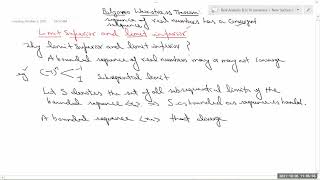 Bolzano Weierstrass Theorem
sequence of real numbers has a convergent
subsequence
Limit Superior and limit inferior
Why limit Superior and limit inferior?
A bounded sequence of real numbers may or may not converge
eg (-1)^n < 1 -1 Subsequential limit
Let S denotes the set of all subsequential limits of the
bounded sequence <xn> ⇒ S is bounded as sequence is bounded.
A bounded sequence <xn> that diverge